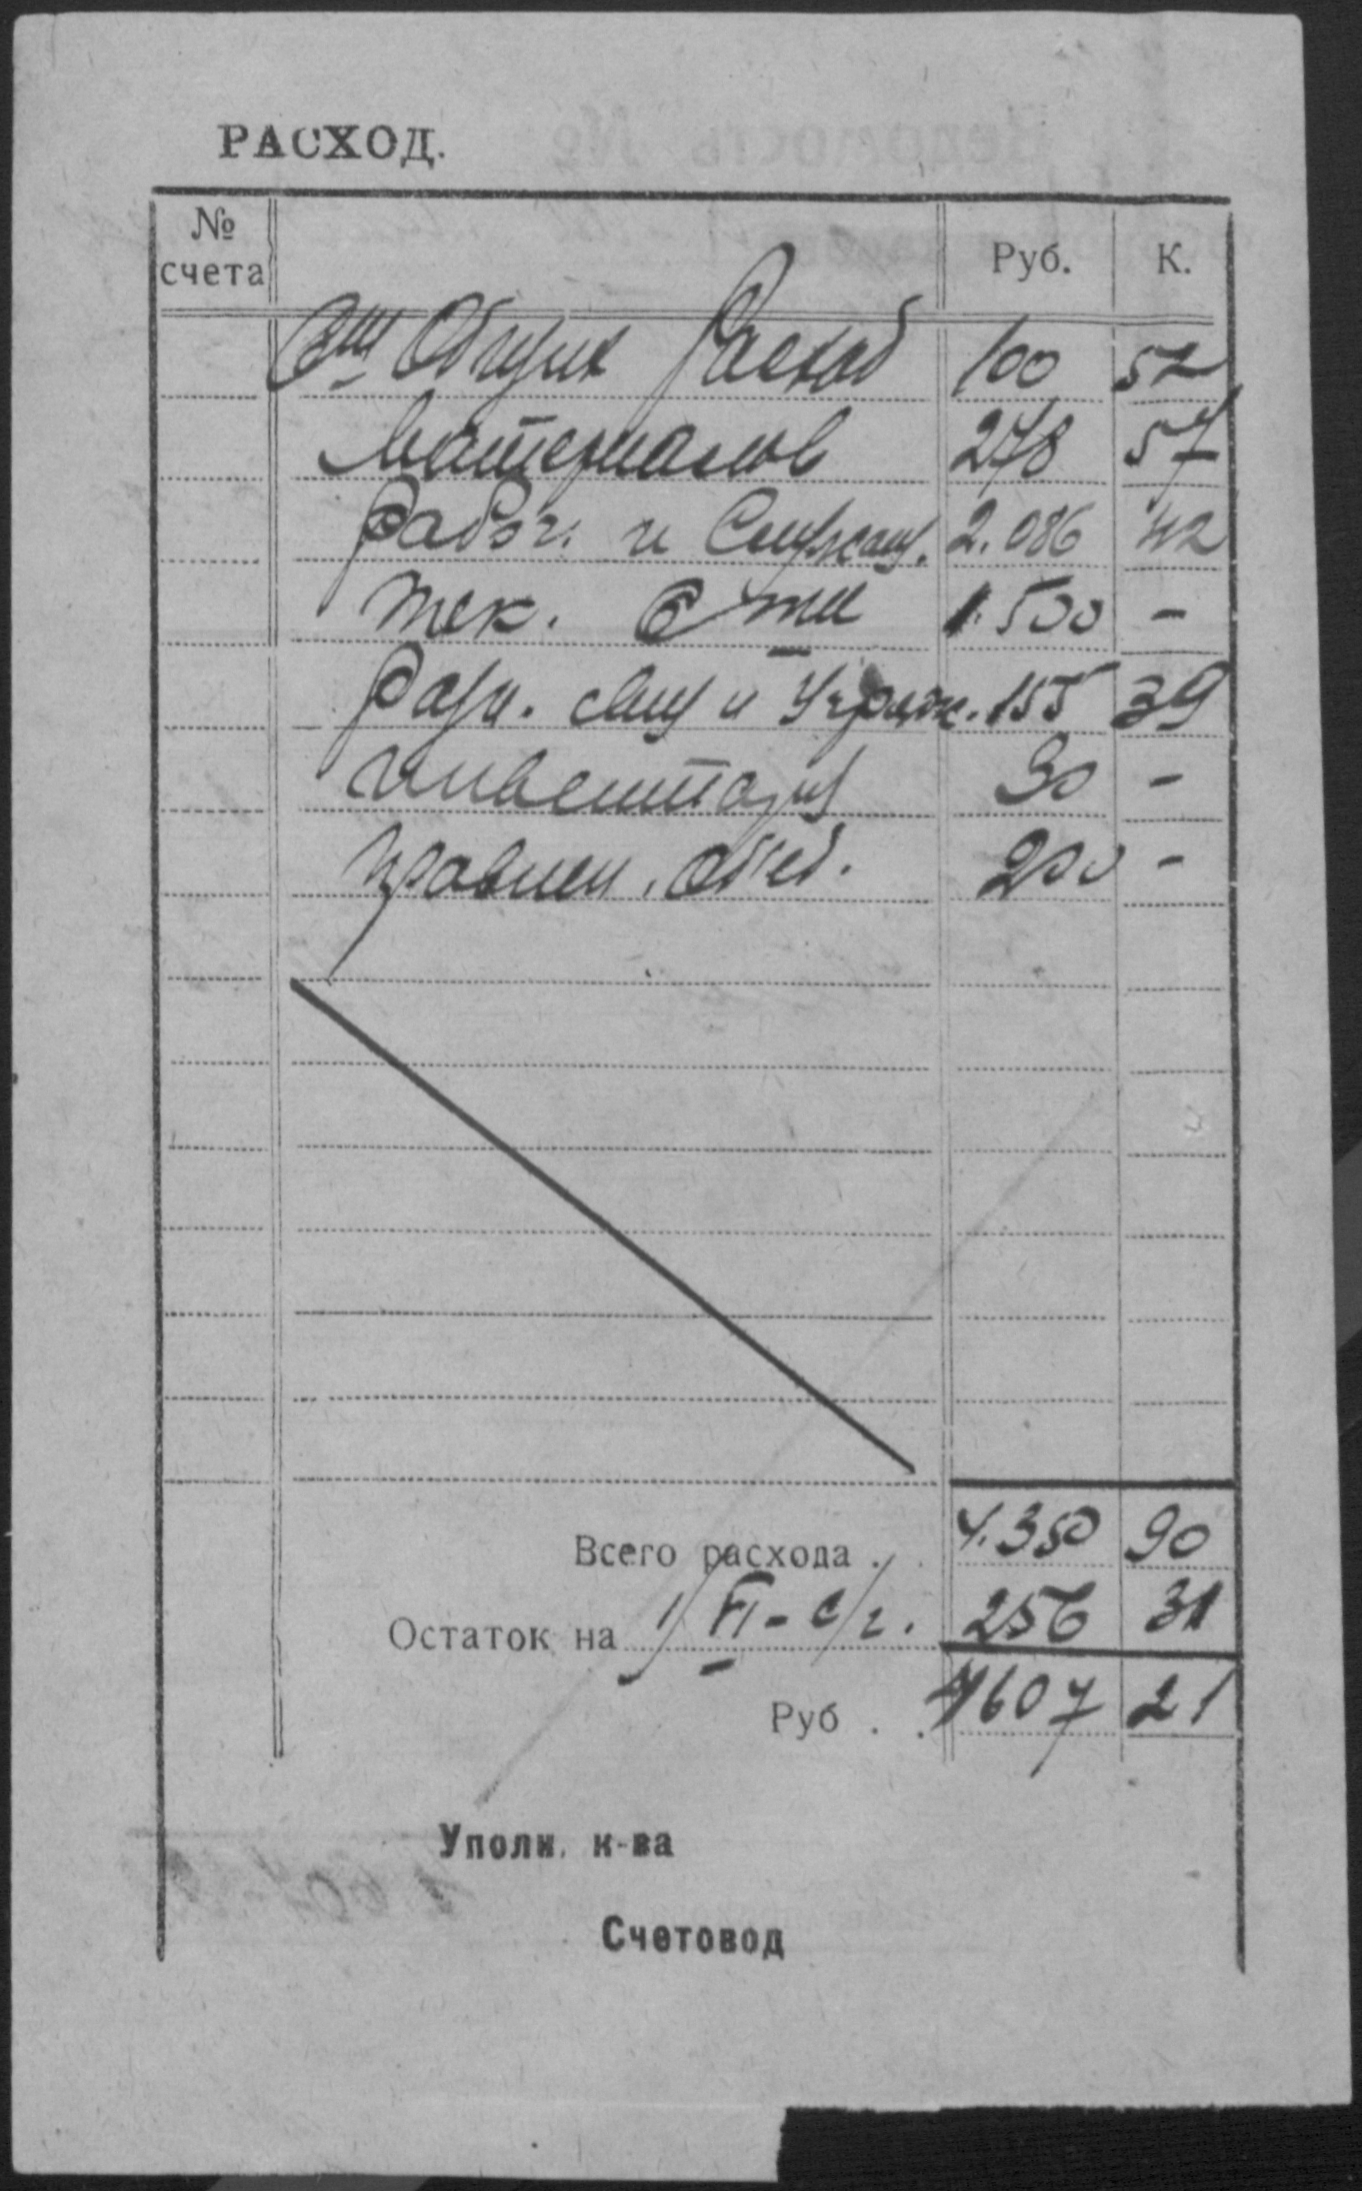 РАСХОД.
№ счета Руб. К.
Сч Общих Расход 100 52
Материалов 278 57
Рабоч. и Служащ. 2.086 42
Тек. счета 1.500 -
Разн. лиц и Учрежд. 155 39
Инвентарь 30 -
Правлен. объед. 200 -
Всего расхода . . 4.350 90
Остаток на 1/VI - с/г. 256 31
Руб . . 4607 21
Уполн. к-ва
Счетовод